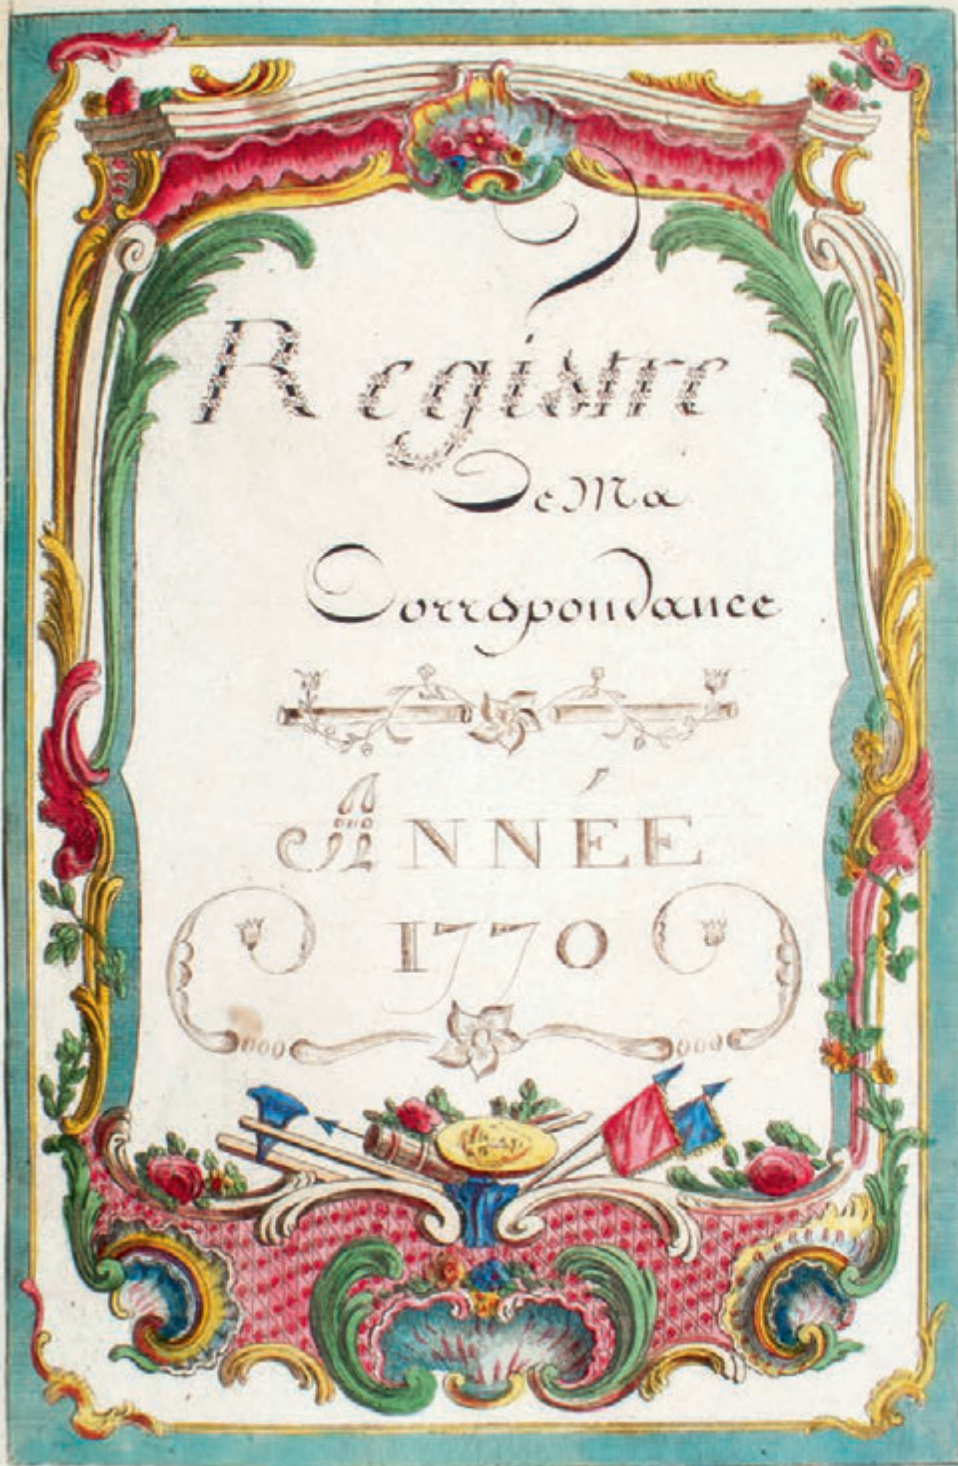 Registre
De Ma
Correspondance
ANNÉE
1770